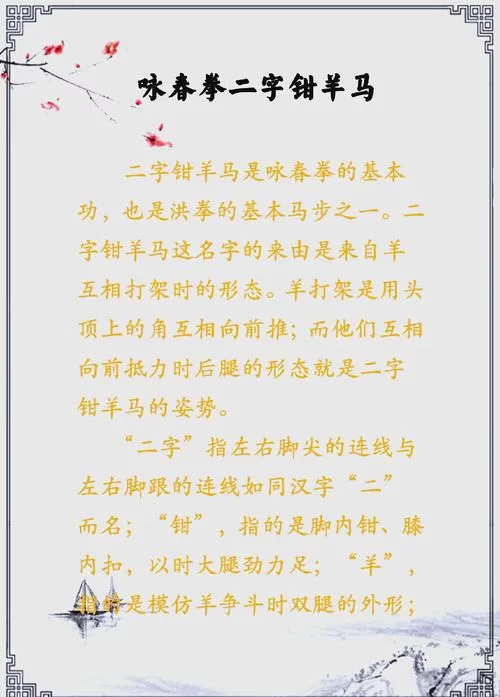 咏春拳二字钳羊马
二字钳羊马是咏春拳的基本
功，也是洪拳的基本马步之一。二
字钳羊马这名字的来由是来自羊
互相打架时的形态。羊打架是用头
顶上的角互相向前推；而他们互相
向前抵力时后腿的形态就是二字
钳羊马的姿势。
“二字”指左右脚尖的连线与
左右脚跟的连线如同汉字“二”
而名；“钳”，指的是脚内钳、膝
内扣，以时大腿劲力足；“羊”，
指的是模仿羊争斗时双腿的外形；